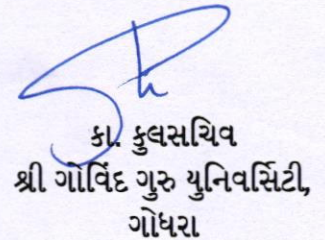 કા. કુલસચિવ
શ્રી ગોવિંદ ગુરુ યુનિવર્સિટી,
ગોધરા